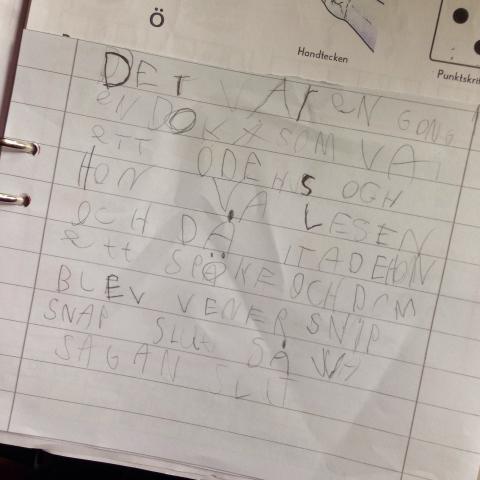 Ö
Handtecken
Punktskri
DET VAr eN GONG
eN DOKA SOM VA I
eTT ODEHUS OGH
HON VA LESEN
OCH DÅ ITADEHON
ett SPÖKE OCH DOM
BLEV VENER SNIP
SNAP SLUt SÅ VA
SAGAN SLUT